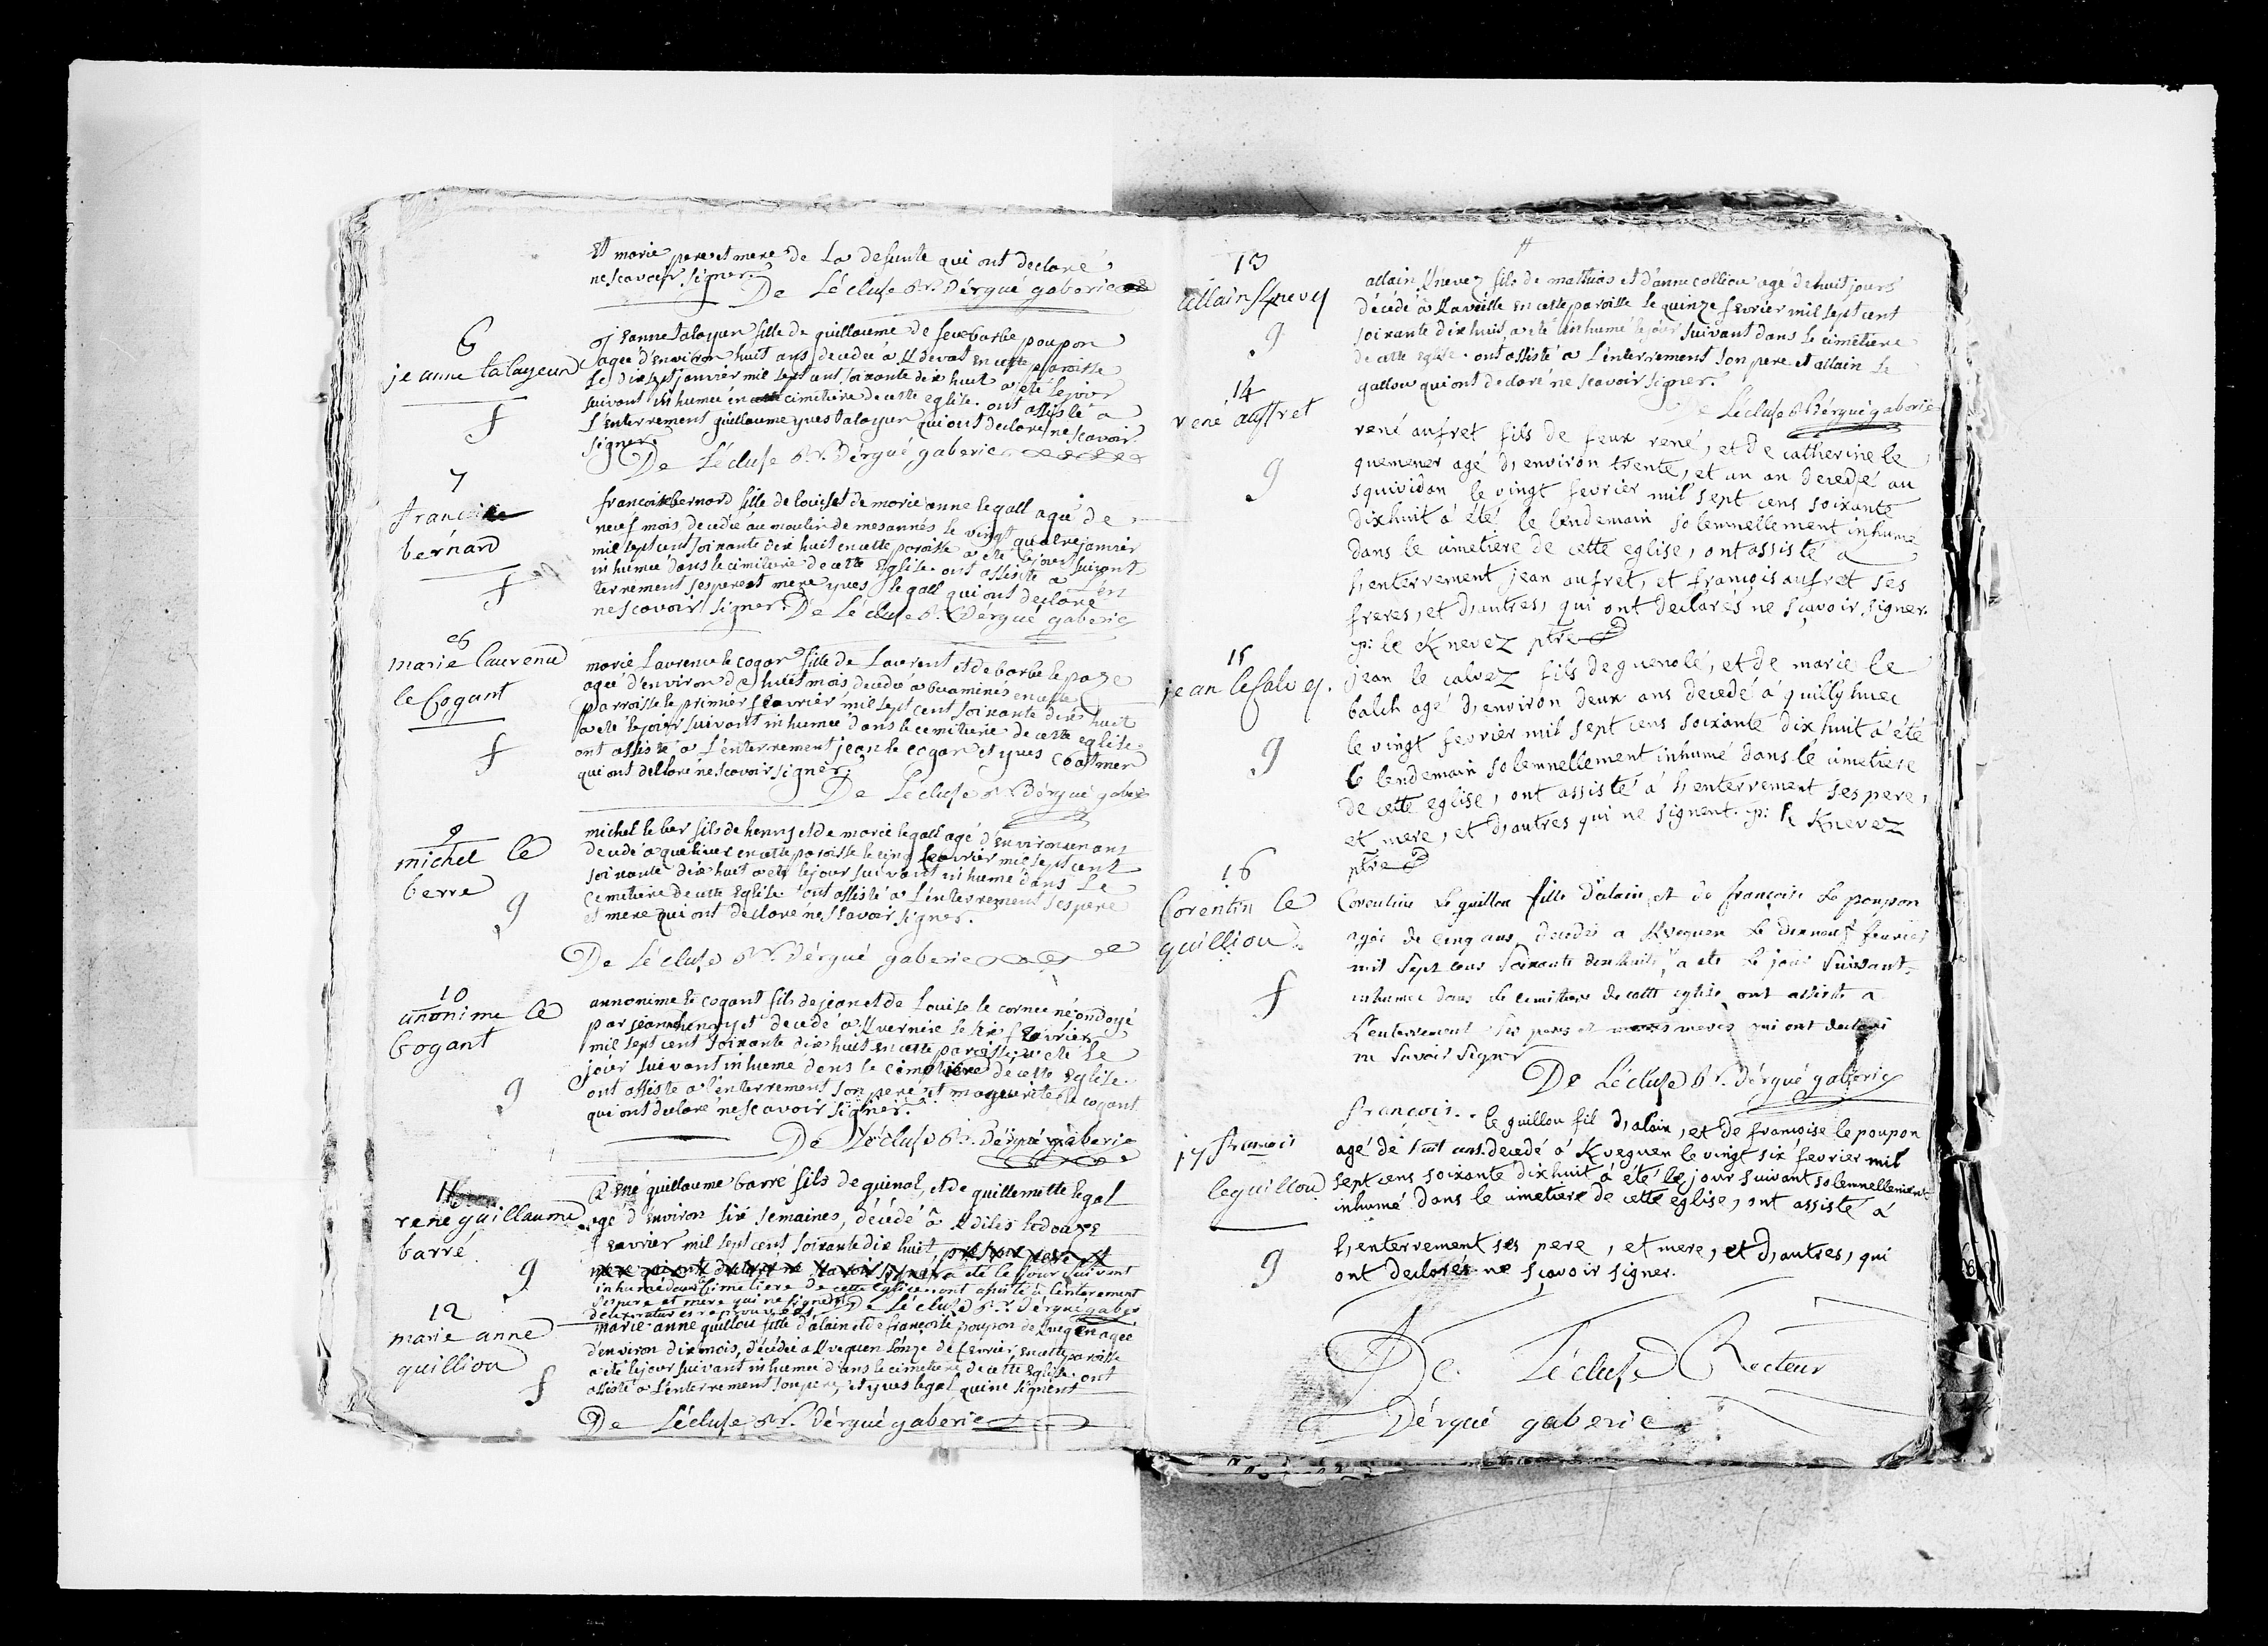 Et marie pere et mere de La defunte qui ont declaré
ne scavoir signer.
De Lécluse Rr. Dérgué gaberic
6
jeanne talayeur
f
jeanne talayeur fille de guillaume de feue barbe poupon
agée d'environ huit ans decedée à Kdevot en cette paroisse
Le dix sept janvier mil sept cent soixante dix huit a été le jour
suivant inhumée en cimetiere de cette eglise. ont assisté a
L'enterrement guillaume yves talayeur qui ont declaré ne scavoir
signer
De Lécluse Rr. Dérgué gaberic
7
francoise
bernard
f
francoise bernard fille de louis et de marie anne le gall agée de
neuf mois decedée au moulin de mesannés le vingt quatre janvier
mil sept cent soixante dix huit en cette paroisse a été le jour suivant
inhumée dans le cimitiere de cette Eglise. ont assisté a L'en
terrement ses pere et mere yves le gall qui ont declaré
ne scavoir signer. De Lécluse Rr. Dérgué gaberic
8
marie laurence
le Cogant
f
marie Laurence le cogan fille de Laurent et de barbe le page
agée d'environ de huit mois decedée a en cette
parroisse le premier fevrier mil sept cent soixante dix huit
a été le jour suivant inhumée dans le cemitiere de cette eglise.
ont assisté a L'enterrement jean le cogan et yves Coatmen
qui ont declaré ne scavoir signer.
De Lécluse Rr. Dérgué gaberic
9
michel le
berre
g
michel le ber fils de henry et de marie le gall agé d'environ un ans
decedé a en cette paroisse le cinq fevrier mil sept cent
soixante dix huit a été le jour suivant inhumé dans Le
Cemitiere de cette Eglise ont assisté a L'enterrement ses pere
et mere qui ont declaré ne scavoir signer.
De Lécluse Rr. Dérgué gaberic
10
anonime le
Cogant
g
annonime le cogant fils de jean et de Louise le cornec né ondoyé
par jeanne henry et decedé a Kvernire le six fevrier
mil sept cent soixante dix huit en cette paroisse, a été Le
jour suivant inhumé dans le cimetiere de cette Eglise.
ont assisté a L'enterrement son pere et marguerite le cogant
qui ont declaré ne scavoir signer.
De Lécluse Rr. Dérgué gaberic
11
rené guillaume
barré
g
René guillaume barré fils de guinol, et de guillemette le gal
agé d'environ six semaines, décédé à Kdiles le douze
fevrier mil sept cent soixante dix huit,
a été le jour suivant
inhumé dans Cimetiere de cette Eglise. ont assisté à l'enterement
ses pere et mere qui ne signent De Lécluse Rr. Dérgué gaber
12
marie anne
guilliou
f
marie-anne guillou fille d'alain et de françoise poupon de Kveguen agée
d'environ dix mois, décédée a Kveguen L'onze de fevrier, en cette paroisse
a été le jour suivant inhumée dans le cimetiere de cette Eglise. ont
assisté a L'enterrement son pere, et yves le gal qui ne signent
De Lécluse Rr. Dérgué gaberic
13
allain Knevez
g
allain Knevez fils de mathias et d'anne colliou agé de huit jours
décédé a Kaveille en cette paroisse le quinze fevrier mil sept cent
soixante dix huit a été inhumé le jour suivant dans le cimetiere
de cette Eglise. ont assisté a L'enterrement son pere et allain Le
gallou qui ont declaré ne scavoir signer.
De Lécluse Rr. Dérgué gaberic
14
rené auffret
g
rené aufret fils de feux rené, et de catherine le
quemener agé d'environ trente, et un an decedé au
squividan le vingt fevrier mil sept cens soixante
dixhuit a été le lendemain solemnellement inhumé
dans le cimetiere de cette eglise, ont assisté a
l'enterrement jean aufret, et françois aufret ses
freres, et d'autres, qui ont declarés ne sçavoir signer.
p: le Knevez ptre
15
jean le Calvez.
g
jean le calvez fils de guenolé, et de marie le
balch agé d'environ deux ans decedé a quillyhuec
le vingt fevrier mil sept cens soixante dix huit a été
le lendemain solemnellement inhumé dans le cimetiere
de cette eglise, ont assisté á l'enterrement ses pere,
et mere, et d'autres qui ne signent. p: le Knevez
ptre
16
Corentin le
guilliou
f
Corentine Le guillou fille d'alain et de françoise Le poupon
agée de Cinq ans decedée a Kveguen Le dix neuf fevrier
mil sept cens soixante dix huit, a ete Le jour suivant
inhumée dans Le cemitiere de cette eglise ont assisté a
L'enterrement ses peres et meres qui ont declaré
ne savoir signer
De Lécluse Rr. Dérgué gaberic
17 francois
leguillou
g
françois. le guillou fil d'alain, et de françoise le poupon
agé de sept ans. decedé á Kveguen le vingt six fevrier mil
sept cens soixante dix huit á été le jour suivant solemnellement
inhumé dans le cimetiere de cette eglise, ont assisté á
l'enterrement ses pere, et mere, et d'autres, qui
ont declarés ne sçavoir signer.
De Lécluse Recteur
Dérgué gaberic